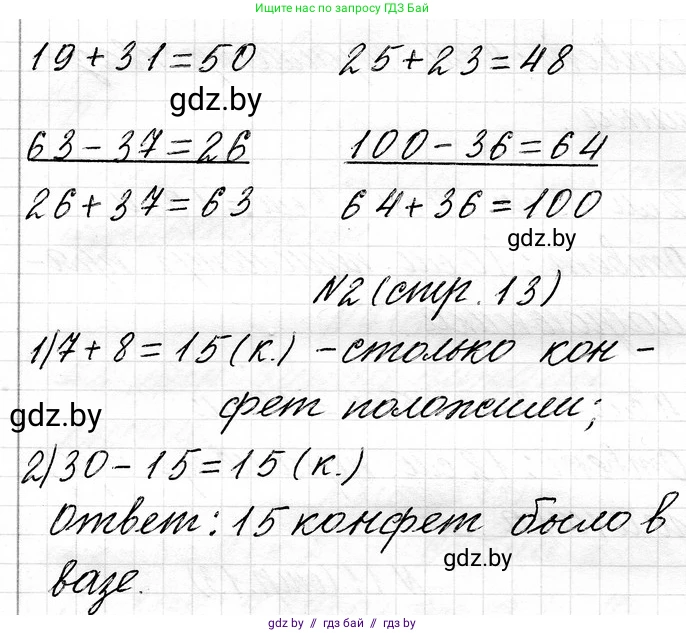 Ищите нас по запросу ГДЗ Бай
19+31=50 25+23=48
gdz.by
63-37=26 100-36=64
26+37=63 64+36=100
gdz.by
N2 (стр. 13)
1) 7+8=15 (к.) - столько кон-
gdz.by
фет положили;
2) 30-15=15 (к.)
Ответ: 15 конфет было в
gdz.by
вазе.
gdz.by // гдз бай // гдз by